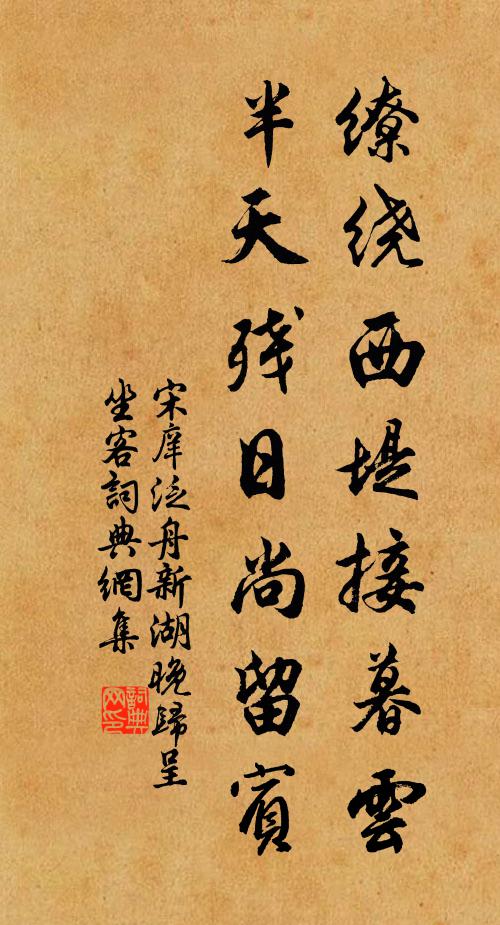 缭绕西堤接暮雲
半天残日尚留賓
宋庠泛舟新湖晚歸呈
坐客詞典網集
詞典
网印